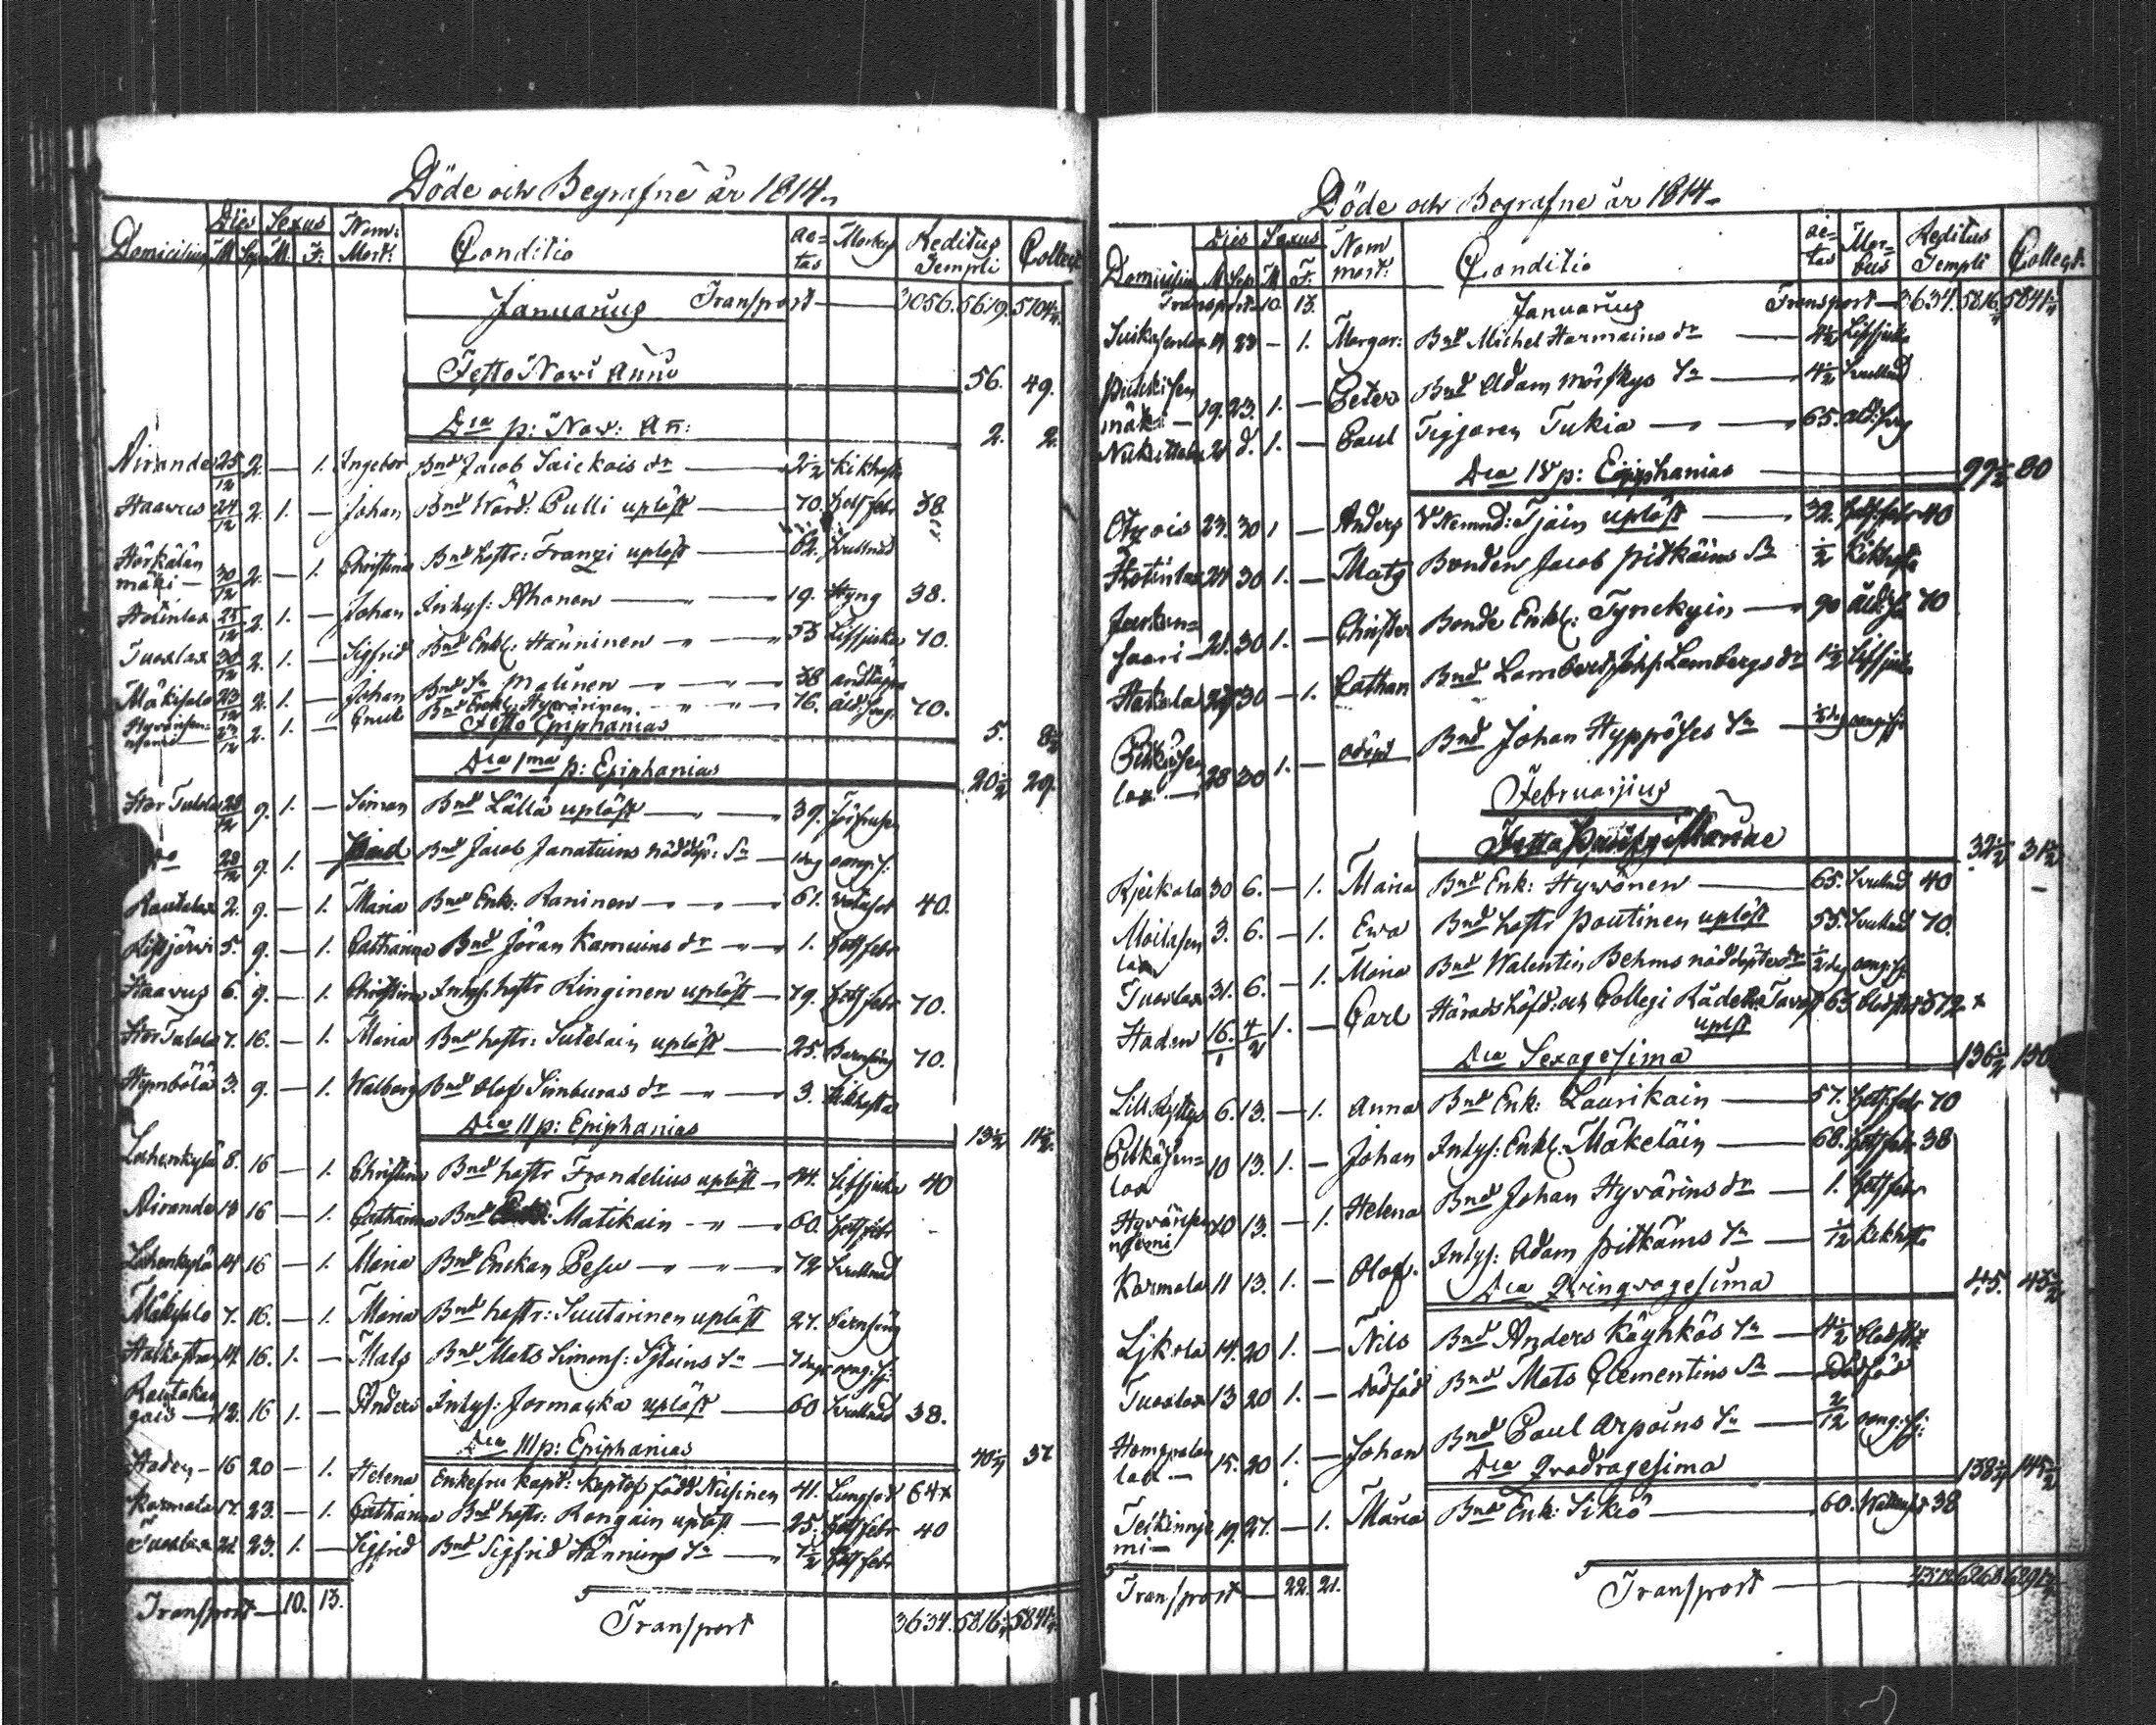 Döde och Begrafne år 1814.
Domicilium Dies Sexus Nom: Mort: Conditio ae= tas Morbus Reditus Templi Collect
M Sep M. F.
Januarius Transport 3056. 5619. 5704
Festo Novi Anni 56. 49.
Dca p: Nov: An: 2. 2.
Nirande 25/12 2. — 1. Ingebor Bnd Jacob Saickois dr 2 1/2 kikhosta
Haavus 24/12 2. 1. — Johan Bnd Wärd: Pulli uplöst 70. hetsfebr 38.
Härkälän mäki 30/12 2. — 1. Christina Bnd hstr: Franzi uplöst 62. Svullnad
Hotinlax 25/12 2. 1. — Johan Inhys: Ahonen 19. Styng 38.
Tuoslax 30/12 2. 1. — Sigfrid Bnd Enkl: Hänninen 53 Lifsjuka 70.
Mäkisalo 23/12 2. 1. — Johan Bnd Sn Malinen 38 andtäppa
Hyvärisen niemi 27/12 2. 1. — Knut Bnd Enkl: Hyvärinen 76. åld: 70.
Festo Epiphanias 5. 8 1/2
Dca 1ma p: Epiphanias 20 1/2 29.
Stor Tulola 28/12 9. 1. — Simon Bnd Lällä uplöst 39.
do 28/12 9. 1. — Bnd Jacob Janatuins nöddöpt: Sn 1 dag oang:sj:
Rautalax 2. 9. — 1. Maria Bnd Enk: Raninen 61. 40.
Kiltjärvi 5. 9. — 1. Catharina Bnd Jöran Kamuins dr 1. hetsfebr
Haavus 6. 9. — 1. Christina Inhys. hstr Kinginen uplöst 79. hetsfebr 70.
Stor Tulola 7. 16. — 1. Maria Bnd hstr: Sutelain uplöst 25. Barnsäng 70.
Hymbölä 3. 9. — 1. Walborg Bnd Olof Simburas dr 3. kikhosta
Dca II p: Epiphanias 13 1/2 11 1/2.
Lahenkylä 8. 16 — 1. Christina Bnd hstr Frondelius uplöst 44. Lifsjuka 40
Nirande 13 16 — 1. Catharina Bnd Matikain 60. hetsfebr
Lahenkylä 14 16 — 1. Maria Bnd Enckan Pesu 72 Svullnad
Mäkisalo 7. 16. — 1. Maria Bnd hstr: Suutarinen uplöst 27. barnsäng
14. 16. 1. — Mats Bnd Mats Simons: Sn 7 dagar oang:sj:
Rautakan gais 12. 16 1. — Anders Inhys: Jormaycka uplöst 60 Svullnad 38.
Dca III p: Epiphanias 40 1/2 37
Staden 16 20 — 1. Helena Enkefru kapt: född Nisinen 41. Lungsot 64 x
Karmala 17. 23. — 1. Catharina Bnd hstr: Rongain uplöst 25. hetsfebr 40
Tuoslax 21. 23. 1. — Sigfrid Bnd Sigfrid Hännins Sn 1/2 hetsfebr
Transport 10. 13.
Transport 3634. 5816 5841
Döde och Begrafne år 1814
Domicilium Dies Sexus Nom mort: Conditio ae= tas Mor= bus Reditus Templi Collect.
M Sep M F.
Transport 10. 13. Januarius Transport 3634. 5816 5841
19 23 — 1. Margar: Bnd Michel Harmains dr 4 1/2 Lifsjuka
mäki 19. 23. 1. — Peter Bnd Adam Mörskys Sn 4 1/2 Svullnad
21 d. 1. — Paul Tiggaren Tukia 65. åld:
Dca IV p: Epiphanias 99 1/2 80
Otzois 23. 30 1 — Anders Nemnd: Tjäin uplöst 32. hetsfebr 40
Hotinlax 24 30 1. — Mats Bonden Jacob Pitkäins Sn 1/2 kikhosta
saari 21. 30 1. — Christer Bonde Enkl: Tynckyin 90 åld: 70
Hakala 30 — 1. Cathar Bnd Lambert Lambergs dr 1 1/2 Lifsjuka
Pitkäsen lax 28 30 1. — odöpt Bnd Johan Hyppöses Sn 1/2 dag oang:sj:
Februarius
Festo Purif: Mariae 32 1/2 31 1/2
Kjeckala 30 6. — 1. Maria Bnd Enk: Hyvönen 65. Svullnad 40
Moilasen lax 3. 6. — 1. Ewa Bnd hstr Poutinen uplöst 55. Svullnad 70.
Tuoslax 31. 6. — 1. Maria Bnd Walentin Behms nöddöpte dr 1/2 dag oang:sj:
Staden 16/1 4/2 1. — Carl Häradshöfd: och Collegi Rådet 63 572 x
uplöst
Dca Sexagesima 136 1/2 130
Lill Kyttys 6. 13. — 1. Anna Bnd Enk: Laurikain 57. hetsfebr 70
Pitkäsen= lax 10 13. 1. — Johan Inhys: Enkl: Mäkeläin 68. hetsfebr 38
Hyvärisen niemi 10 13. — 1. Helena Bnd Johan Hyvärins dr 1. hetsfebr
Karmala 11 13. 1. — Olof Inhys: Adam Pitkäins Sn 1/2 kikhosta
Dca Qvinqvagesima 45. 45 1/2
Lykola 14. 20 1. — Nils Bnd Anders Käyhkös Sn 4 1/2
Tuoslax 13 20 1. — dödfödd Bnd Mats Clementins Sn Dödfödd
Hompalan lax 15. 20 1. — Johan Bnd Paul Arpoins Sn 2/12 oang:sj:
Dca Qvadragesima 138 1/4 145 1/2
Teikinnie mi 19. 27. — 1. Maria Bnd Enk: Sikiö 60. 38
Transport 22. 21.
Transport